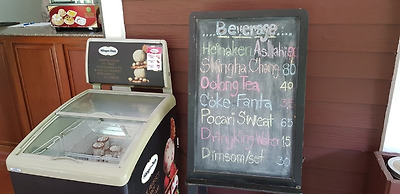 Häagen-Dazs
Beverage
Heineken Asahi 90
Shingha Chang 80
Oolong Tea 40
Coke-Fanta 35
Pocari Sweat 65
Drinking Water 15
Dimsom/set 30